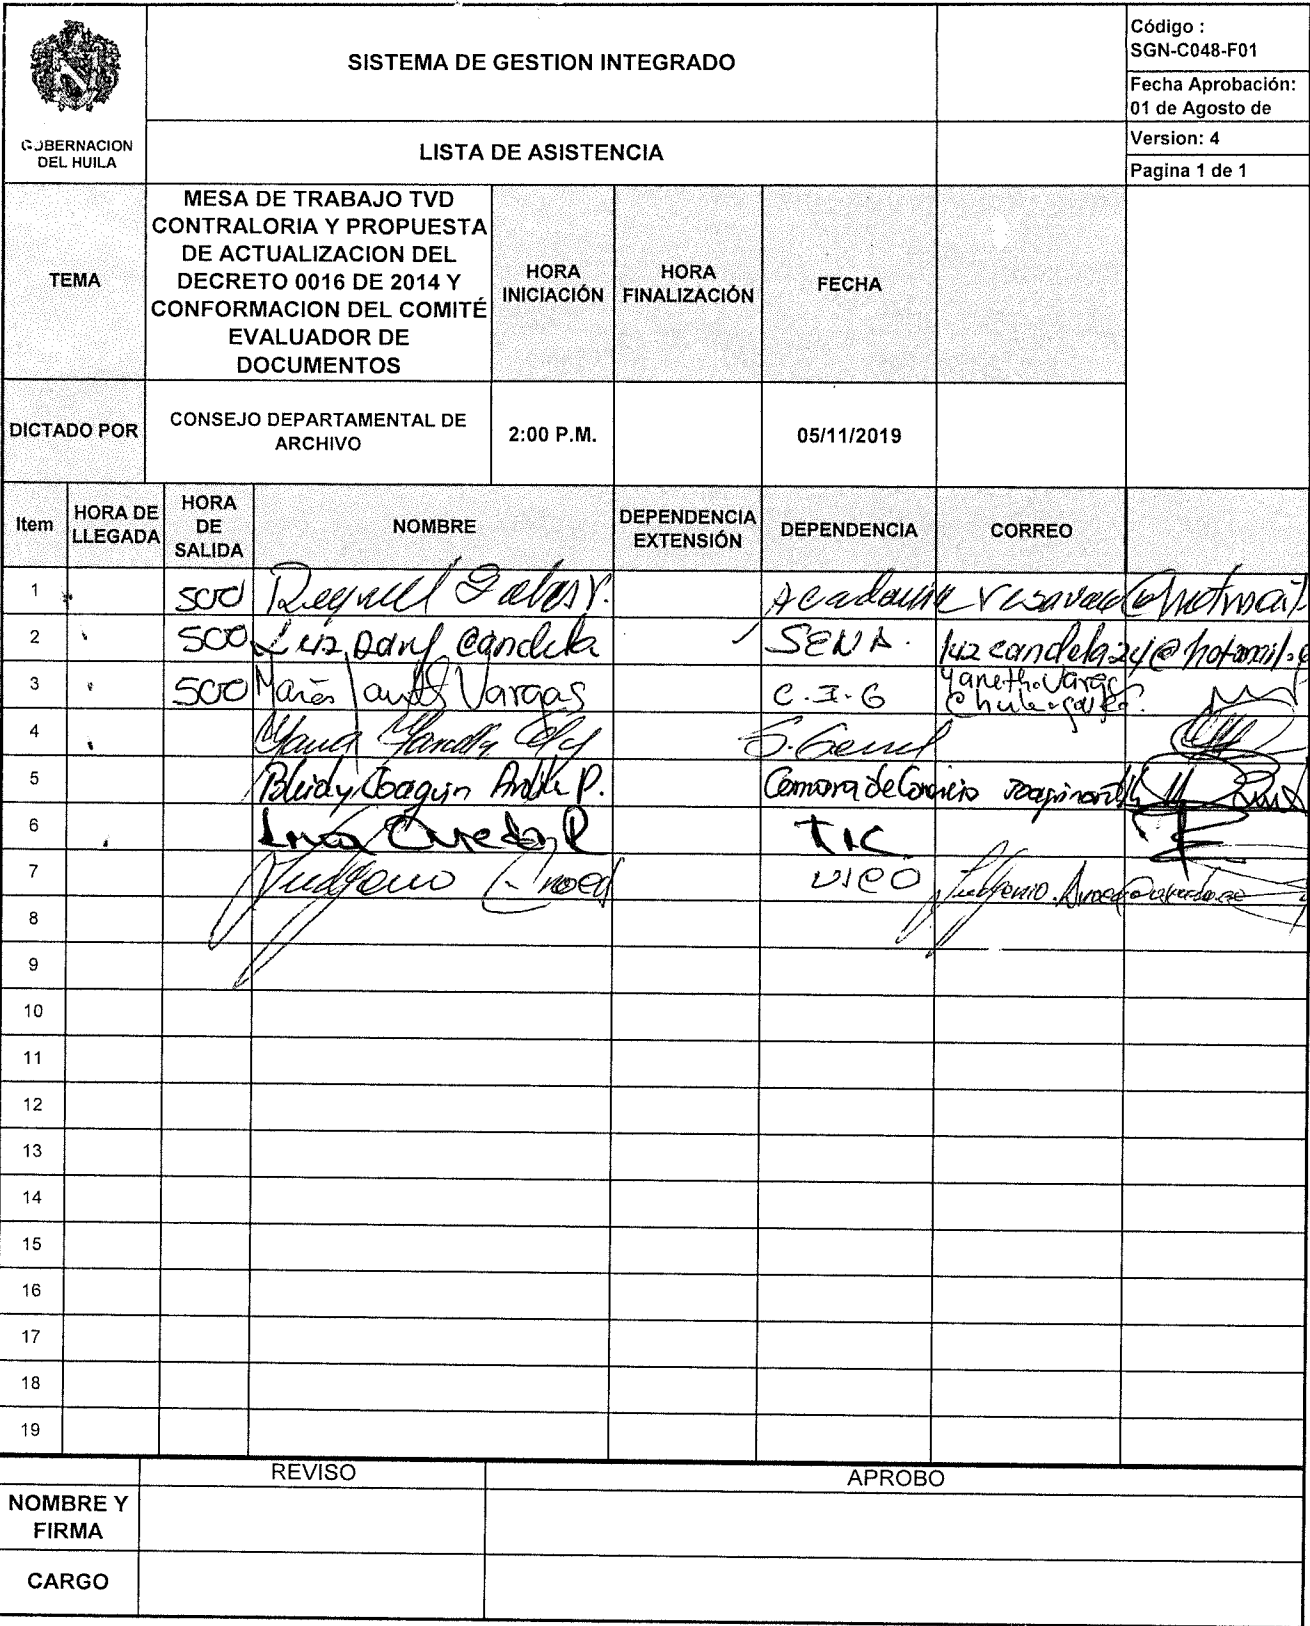 GOBERNACION
DEL HUILA
SISTEMA DE GESTION INTEGRADO
Código :
SGN-C048-F01
Fecha Aprobación:
01 de Agosto de
LISTA DE ASISTENCIA
Version: 4
Pagina 1 de 1
TEMA
MESA DE TRABAJO TVD
CONTRALORIA Y PROPUESTA
DE ACTUALIZACION DEL
DECRETO 0016 DE 2014 Y
CONFORMACION DEL COMITÉ
EVALUADOR DE
DOCUMENTOS
HORA
INICIACIÓN
HORA
FINALIZACIÓN
FECHA
DICTADO POR
CONSEJO DEPARTAMENTAL DE
ARCHIVO
2:00 P.M.
05/11/2019
Item
HORA DE
LLEGADA
HORA
DE
SALIDA
NOMBRE
DEPENDENCIA
EXTENSIÓN
DEPENDENCIA
CORREO
1 500 Academia
2 500 Luz Dary Candela SENA. luzcandela24@hotmail.
3 500 Vargas C.I.G
4
5 Joaquin P. Camara de Comercio
6 TIC
7
8
9
10
11
12
13
14
15
16
17
18
19
REVISO
APROBO
NOMBRE Y
FIRMA
CARGO